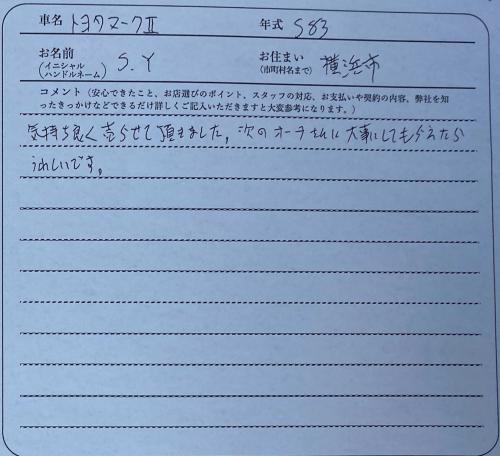 車名 トヨタマークⅡ 年式 S83
お名前
(イニシャル
ハンドルネーム) S.Y お住まい
(市町村名まで) 横浜市
コメント(安心できたこと、お店選びのポイント、スタッフの対応、お支払いや契約の内容、弊社を知
ったきっかけなどできるだけ詳しくご記入いただきますと大変参考になります。)
気持ち良く売らせて頂きました。次のオーナーさんに大事にしてもらえたら
うれしいです。